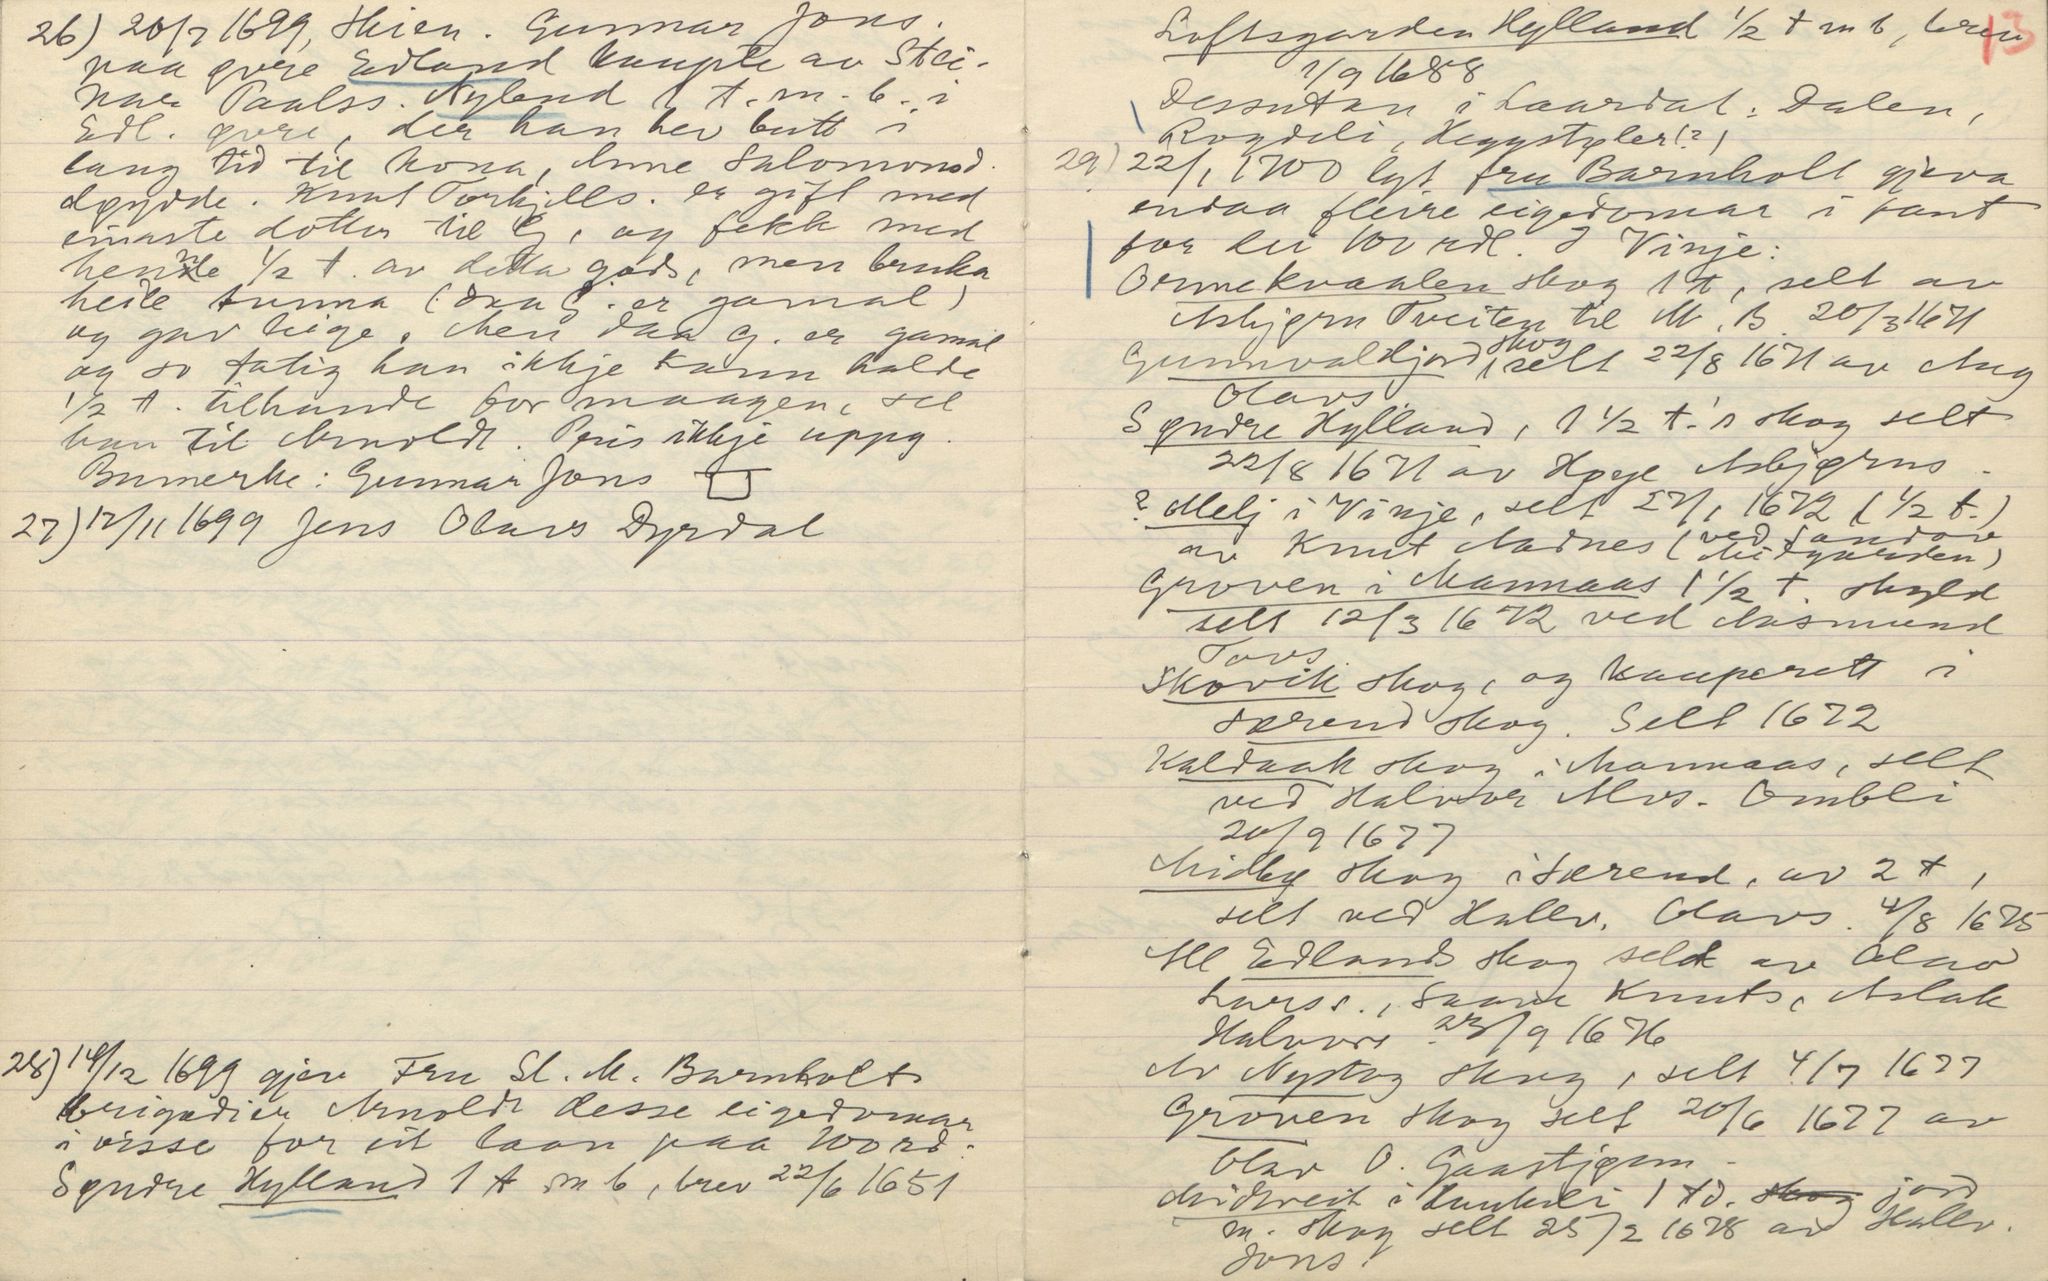 26) 20/7 1699, Skien. Gunnar Jons.
paa øvre Edland kaupte av Stei-
nar Paalss. Nyland 1 t. m. b. i
Edl. øvre, der han hev butt i
lang tid til kona, Anne Salomonsd.
døydde. Knut Torkjells. er gift med
einaste dotter til G, og fekk med
henne 1/2 t. av detta gods, men bruka
heile tunna (daa G. er gamal)
og gav leige. Men daa G. er gamal
og so fatig han ikkje kann halde
1/2 t. tilhande for maagen, sel
han til Arnoldt. Pris ikkje uppg.
Bumerke: Gunnar Jons
27) 17/11 1699 Jens Olavs Dyrdal
28) 14/12 1699 gjev Fru Sl. M. Barnholt
brigadier Arnoldt desse eigedomar
i visse for eit laan paa 100 rd:
Syndre Hylland 1 t m b, brev 22/6 1651
13
Loftsgarden Hylland 1/2 t m b, brev
1/9 1688
Dessutan i Laardal: Dalen,
Rogdeli, Heggstyler(?)
29) 22/1 1700 lyt fru Barnholt gjeva
endaa fleire eigedomar i pant
for dei 100 rdl. I Vinje:
Ormekvaalen skog 1 t, selt av
Asbjørn Tveiten til M. B. 20/3 1671
Gunnvaldjord skog, selt 22/8 1671 av Aug
Olavs
Syndre Hylland, 1 1/2 t.'s skog selt
22/8 1671 av Høye Asbjørns.
? Melj i Vinje, selt 27/1 1672 (1/2 t.)
av Knut Aadnes (ved Sandok
Midgarden)
Groven i Mannaas 1 1/2 t. skyld
selt 12/3 1672 ved Aasmund
Tovs.
Skovik skog, og kauperett i
Særend skog. Selt 1672
Kaldaak skog i Mannaas, selt
ved Halvor Alvs. Ombli
20/9 1677
Midbø skog i Særend, av 2 t,
selt ved Hallv. Olavs. 4/8 1675
All Edlands skog seld av Olav
Larss., Saave Knuts, Aslak
Halvors. 23/9 1676
Av Nystog skog, selt 4/7 1677
Groven skog selt 20/6 1677 av
Olav O. Gaastjønn.
Midtveit i 1 td. skog jord
m. skog selt 25/2 1678 av Hallv.
Jons.